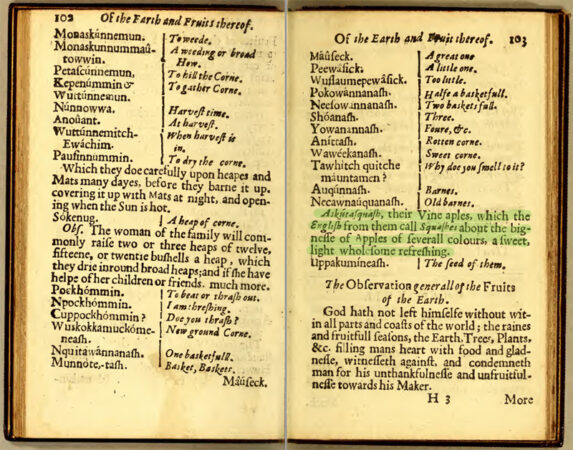 102 Of the Earth and Fruits thereof.
Monaskúnnemun. To weede.
Monaskunnummaû- A weeding or broad
towwin. How.
Petaſcúnnemun, To hill the Corne.
Kepenúmmin & To gather Corne.
Wuttúnnemun.
Núnnowwa. Harveſt time.
Anoûant. At harveſt.
Wuttúnnemitch- When harveſt is
Ewáchim. in.
Pauſinnúmmin. To dry the corne.
Which they doe carefully upon heapes and
Mats many dayes, before they barne it up,
covering it up with Mats at night, and open-
ing when the Sun is hot.
Sókenug. A heap of corne.
Obſ. The woman of the family will com-
monly raiſe two or three heaps of twelve,
fifteene, or twentie buſhells a heap, which
they drie in round broad heaps; and if ſhe have
helpe of her children or friends. much more.
Pockhómmin. To beat or thraſh out.
Npockhómmin. I am threſhing.
Cuppockhómmin? Doe you thraſh?
Wuskokkamuckóme- New ground Corne.
neaſh.
Nquitâwánnanaſh. One basketfull.
Munnóte,-taſh. Basket, Baskets.
Máûſeck.
Of the Earth and Fruit thereof. 103
Mâûſeck. A great one
Peewâſick. A little one.
Wuſſaumepewâſick. Too little.
Pokowánnanaſh. Halfe a basketfull.
Neeſowánnanaſh. Two baskets full.
Shóanaſh. Three.
Yowanánnaſh. Foure, &c.
Aníttaſh. Rotten corne.
Wawéekanaſh. Sweet corne.
Tawhitch quitche Why doe you ſmell to it?
mauntamen?
Auqúnnaſh. Barnes.
Necawnaúquanaſh. Old barnes.
Askútaſquaſh, their Vine aples, which the
Engliſh from them call Squaſhes about the big-
neſſe of Apples of ſeverall colours, a ſweet,
light wholeſome refreſhing.
Uppakumíneaſh. The ſeed of them.
The Obſervation generall of the Fruits
of the Earth.
God hath not left himſelfe without wit-
in all parts and coaſts of the world; the raines
and fruitfull ſeaſons, the Earth, Trees, Plants,
&c. filling mans heart with food and glad-
neſſe, witneſſeth againſt, and condemneth
man for his unthankfulneſſe and unfruitful-
neſſe towards his Maker.
H 3 More